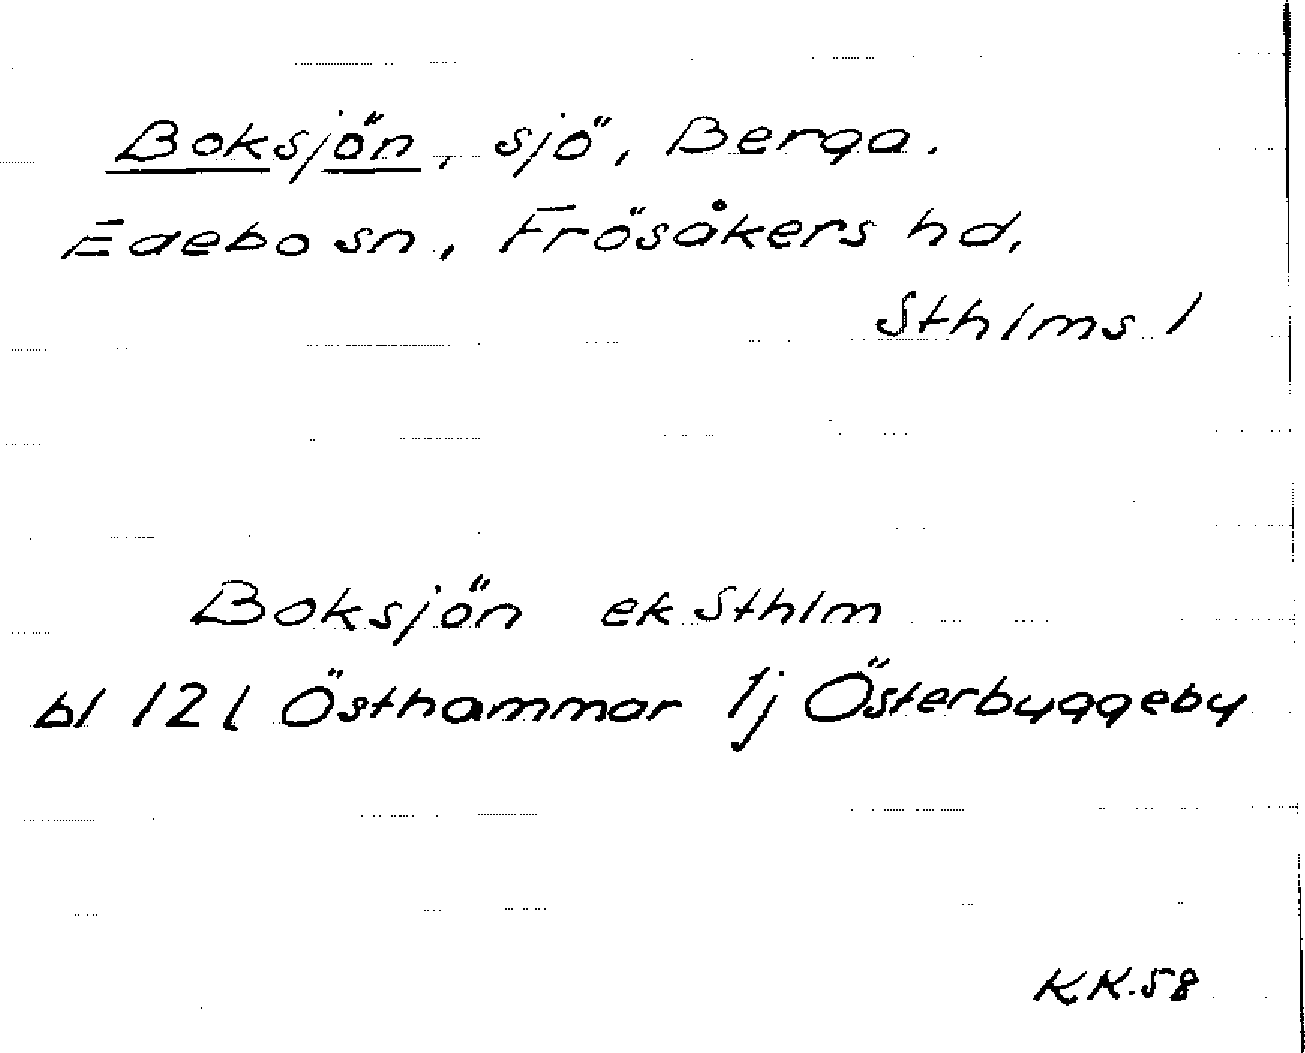 Boksjön, sjö, Berga.
Edebo sn, Frösåkers hd,
Sthlms l
Boksjön ek Sthlm
bl 12 l Östhammar 1j Österbyggeby
KK.58